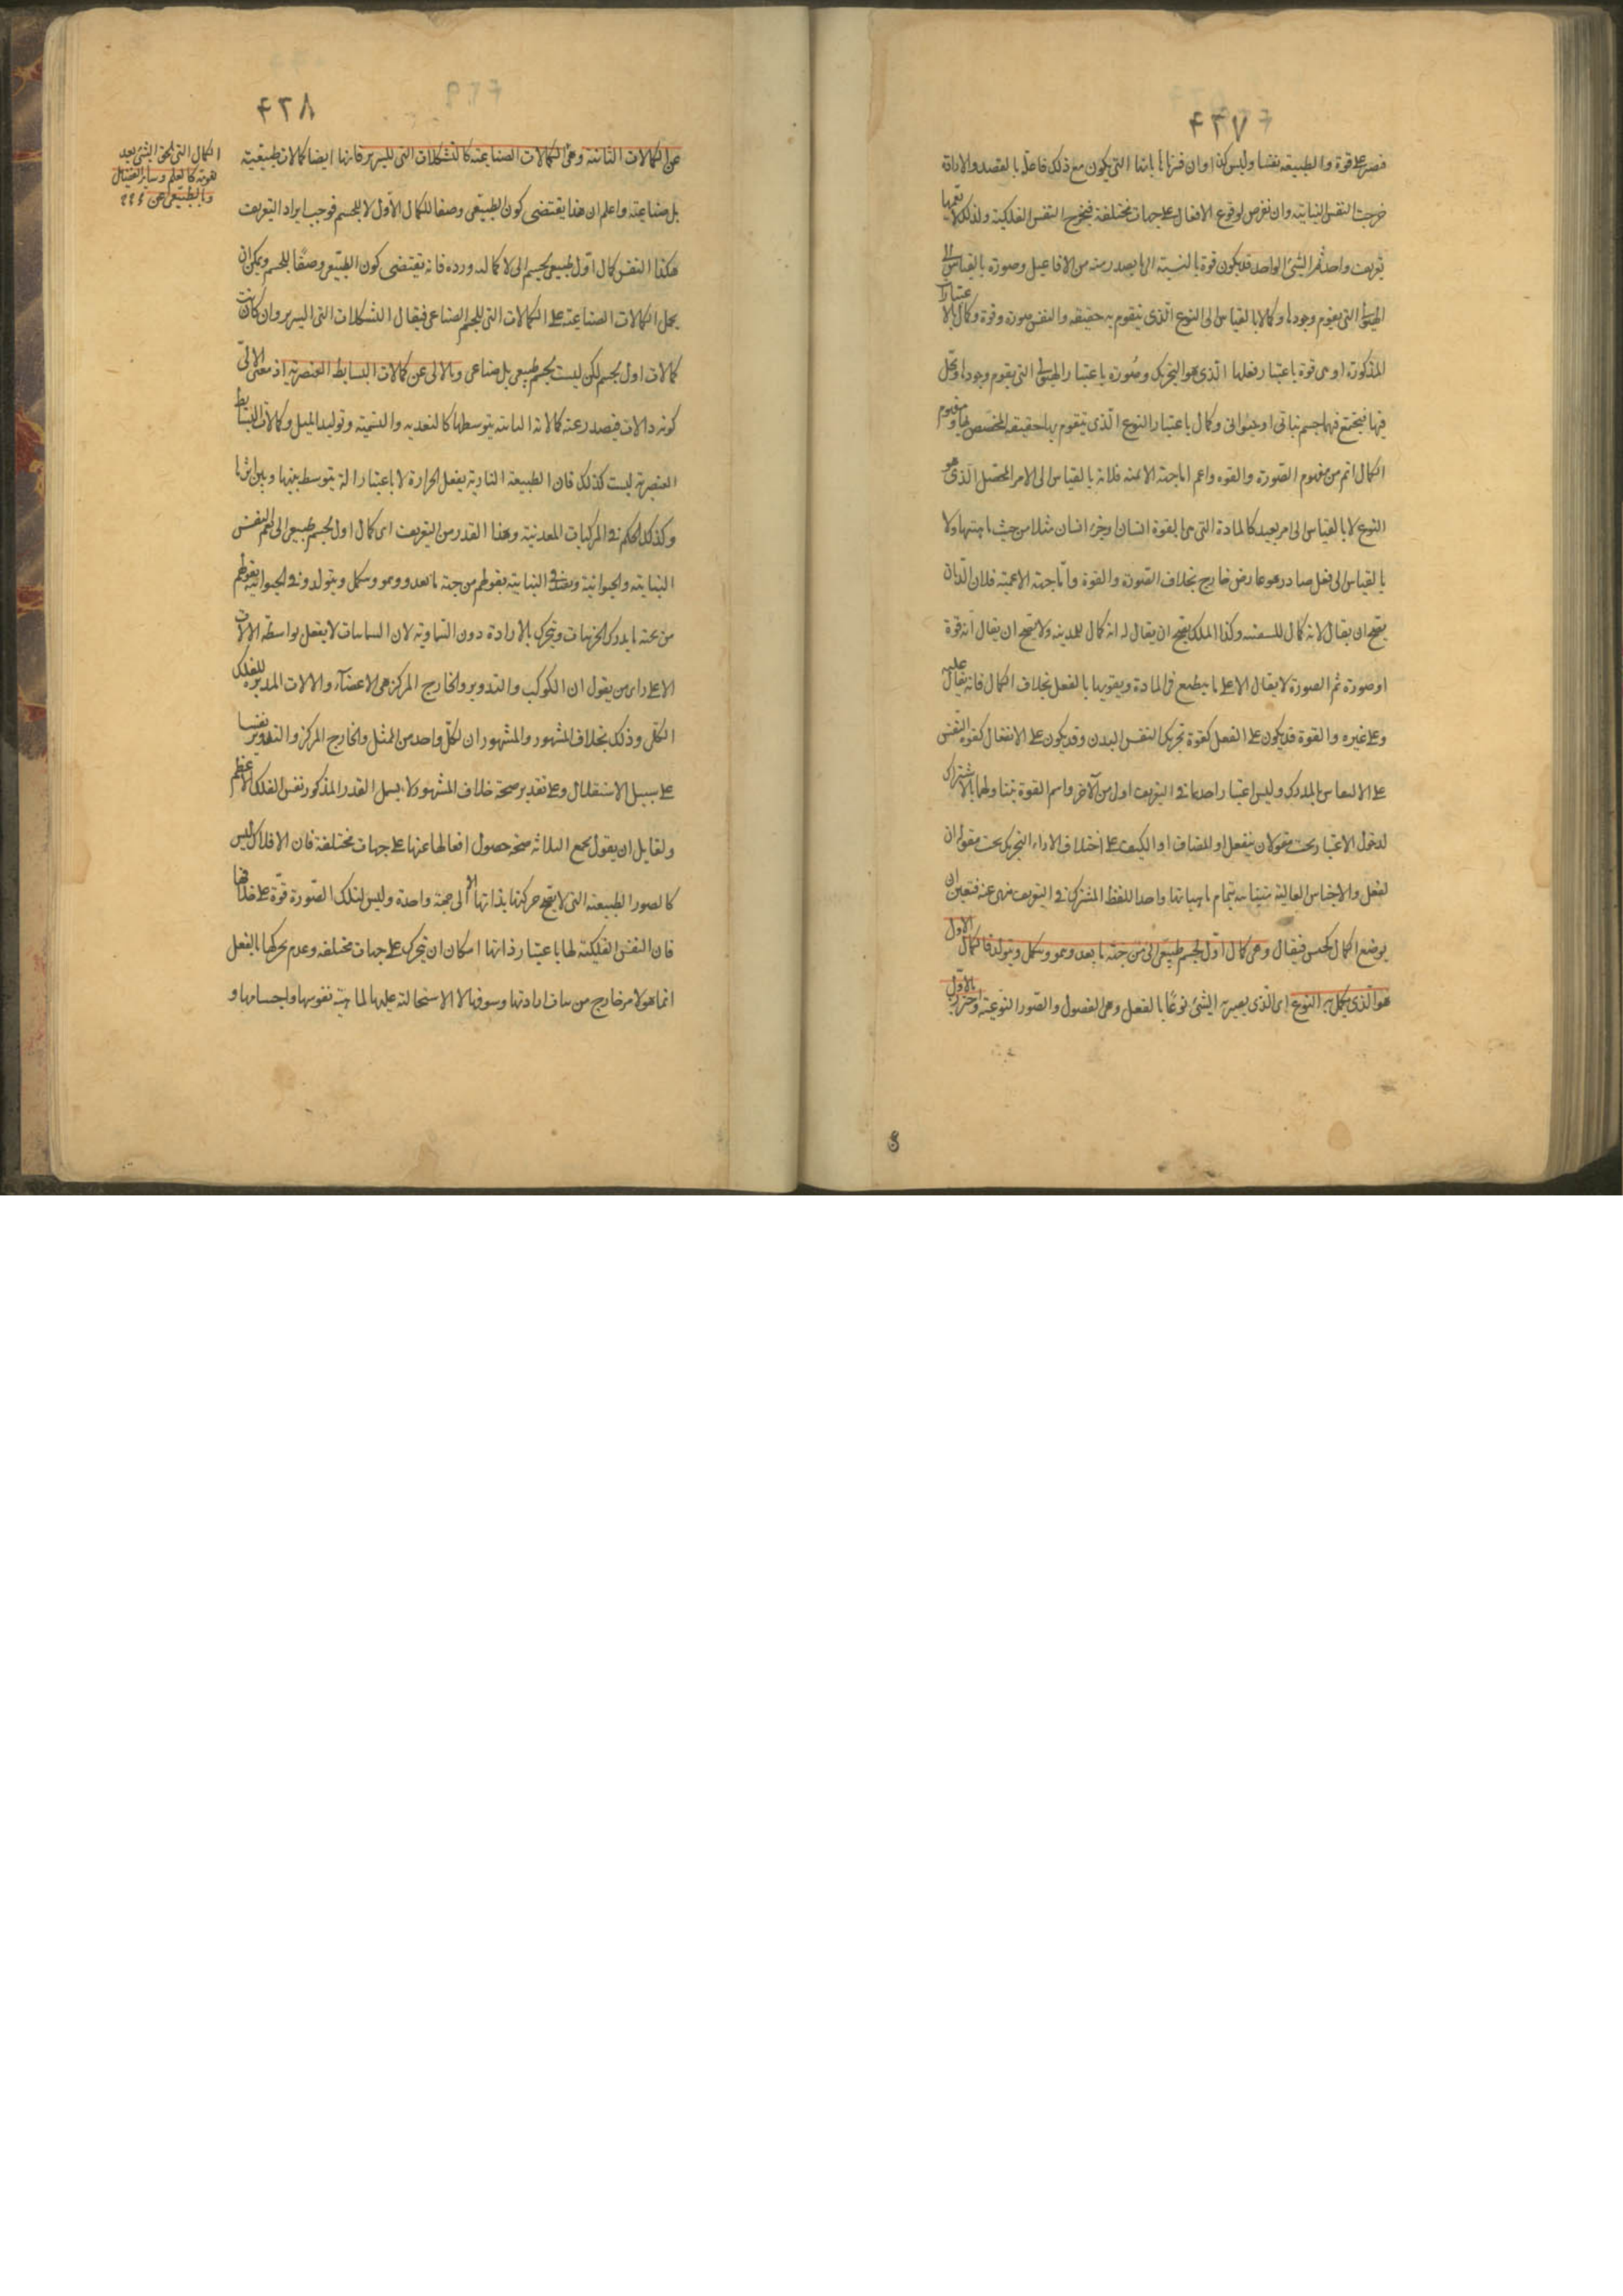 ۴۲۷
قصر على قوة والطبيعة نفسا وليس كذا وان فسرناها بانها التى يكون مع ذلك فاعلة بالقصد والارادة
خرجت النفس النباتية وان نفرض لوقوع الافعال على جهات مختلفة فيخرج النفس الفلكية ولذلك لا تعمها
تعريف واحد ثم الشئ الواحد قد يكون قوة بالنسبة الى ما يصدر منه من الافاعيل وصورة بالقياس الى
الهيولى التى يقوم وجودها وكمالا بالقياس الى النوع الذى يتقوم به حقيقته والنفس صورة وقوة وكمال بالاعتبارات
المذكورة اوهى قوة باعتبار فعلها الذى هو التحريك وصورة باعتبار الهيولى التى يقوم وجودها وتحل
فيها فيجتمع فيها جسم نباتى او حيوانى وكمال باعتبار النوع الذى يتقوم بها حقيقته المخصص لها ومفهوم
الكمال اتم من مفهوم الصورة والقوة واعم اما جهة الاتمية فلانه بالقياس الى الامر المحصل الذى هو
النوع لا بالقياس الى امر بعيد كالمادة التى هى بالقوة انسان او جزء انسان مثلا من حيث ماهيتها ولا
بالقياس الى فعل صادر هو عارض خارج بخلاف الصورة والقوة واما جهة الاعمية فلان الربان
يصح ان يقال لانه كمال للسفينه وكذا الملك يصح ان يقال له انه كمال للمدينه ولا يصح ان يقال انه قوة
او صورة ثم الصورة لا يقال الا على ما ينطبع فى المادة ويقومها بالفعل بخلاف الكمال فانه يقال عليه
وعلى غيره والقوة قد يكون على الفعل كقوة تحريك النفس البدن وقد يكون على الانفعال كقوة النفس
على المدرك وليس اعتبار احدهما فى التعريف اولى من الآخر واسم القوة يتناولهما بالاشتراك
لدخول الاعتبار تحت مقولة ان ينفعل او المضاف او الكيف على اختلاف الاراء والتحريك تحت مقولة ان
يفعل والاجناس العالية متباينة بتمام ماهياتها واحد اللفظ المشترك فى التعريف منهى عنه فتعين ان
يوضع الكمال كجنس فيقال وهى كمال اول لجسم طبيعى الى من جهة ما يغذو وينمو ويتولد فالكمال الاول
هو الذى يكمل به النوع اى الذى يصير به الشئ نوعا بالفعل وهى الفصول والصور النوعية واحترز بالاول
۴۲۸
عن الكمالات الثانية وهى الكمالات الصناعية كالتشكلات التى للسرير فانها ايضا كمالات طبيعية
بل صناعية واعلم ان هذا يقتضى كون الطبيعى وصفا للكمال الاول لا للجسم فوجب ايراد التعريف
هكذا النفس كمال اول طبيعى لجسم الى لا كما اورده فانه يقتضى كون الطبيعى وصفا للجسم ويمكن ان
يحمل الكمالات الصناعية على الكمالات التى للجسم الصناعى فيقال التشكلات التى للسرير وان كانت
كمالات اول لجسم لكن ليست لجسم طبيعى بل صناعى وبالالى عن كمالات البسايط العنصرية اذ معنى الالى
كونه ذا الات فيصدر عنه كمالاته الثانية بتوسطها كالتغذية والتنمية وتوليد المثل وكمالات البسايط
العنصرية ليست كذلك فان الطبيعة النارية يفعل الحرارة لا باعتبار الة يتوسط بينها وبين اثرها
وكذلك الحكم فى المركبات المعدنية وهذا القدر من التعريف اى كمال اول لجسم طبيعى الى يعم النفس
النباتية والحيوانية ويخص فى النباتية بقولهم من جهة ما يغذو وينمو ويتولد وفى الحيوانية بقولهم
من جهة ما يدرك الجزئيات ويتحرك بالارادة دون السماوية لان السماويات لا يفعل بواسطة الالات
الا على راى من يقول ان الكوكب والتدوير والخارج المركز هى الاعضاء والالات المدبرة للفلك
الكلى وذلك بخلاف المشهور والمشهور ان لكل واحد من الممثل والخارج المركز والتدوير نفسا
على سبيل الاستقلال وعلى تقدير صحة خلاف المشهور لا يشمل القدر المذكور نفس الفلك الاعظم
ولقايل ان يقول يجمع الثلاثة صحة حصول افعالها عنها على جهات مختلفة فان الافلاك ليس
كالصور الطبيعية التى لا يصح حركتها بذاتها الا الى جهة واحدة وليس لتلك الصورة قوة على خلافها
فان النفس الفلكية لها باعتبار ذاتها امكان ان يتحرك على جهات مختلفه وعدم تحركها بالفعل
انما هو لامر خارج من ارادتها وشوقها لا لاستحالة عليها لماهية نفوسها واجسامها و
الكمال التى يلحق الشئ بعد
هويته كالعلم وساير الفضايل
وبالطبيعى عن